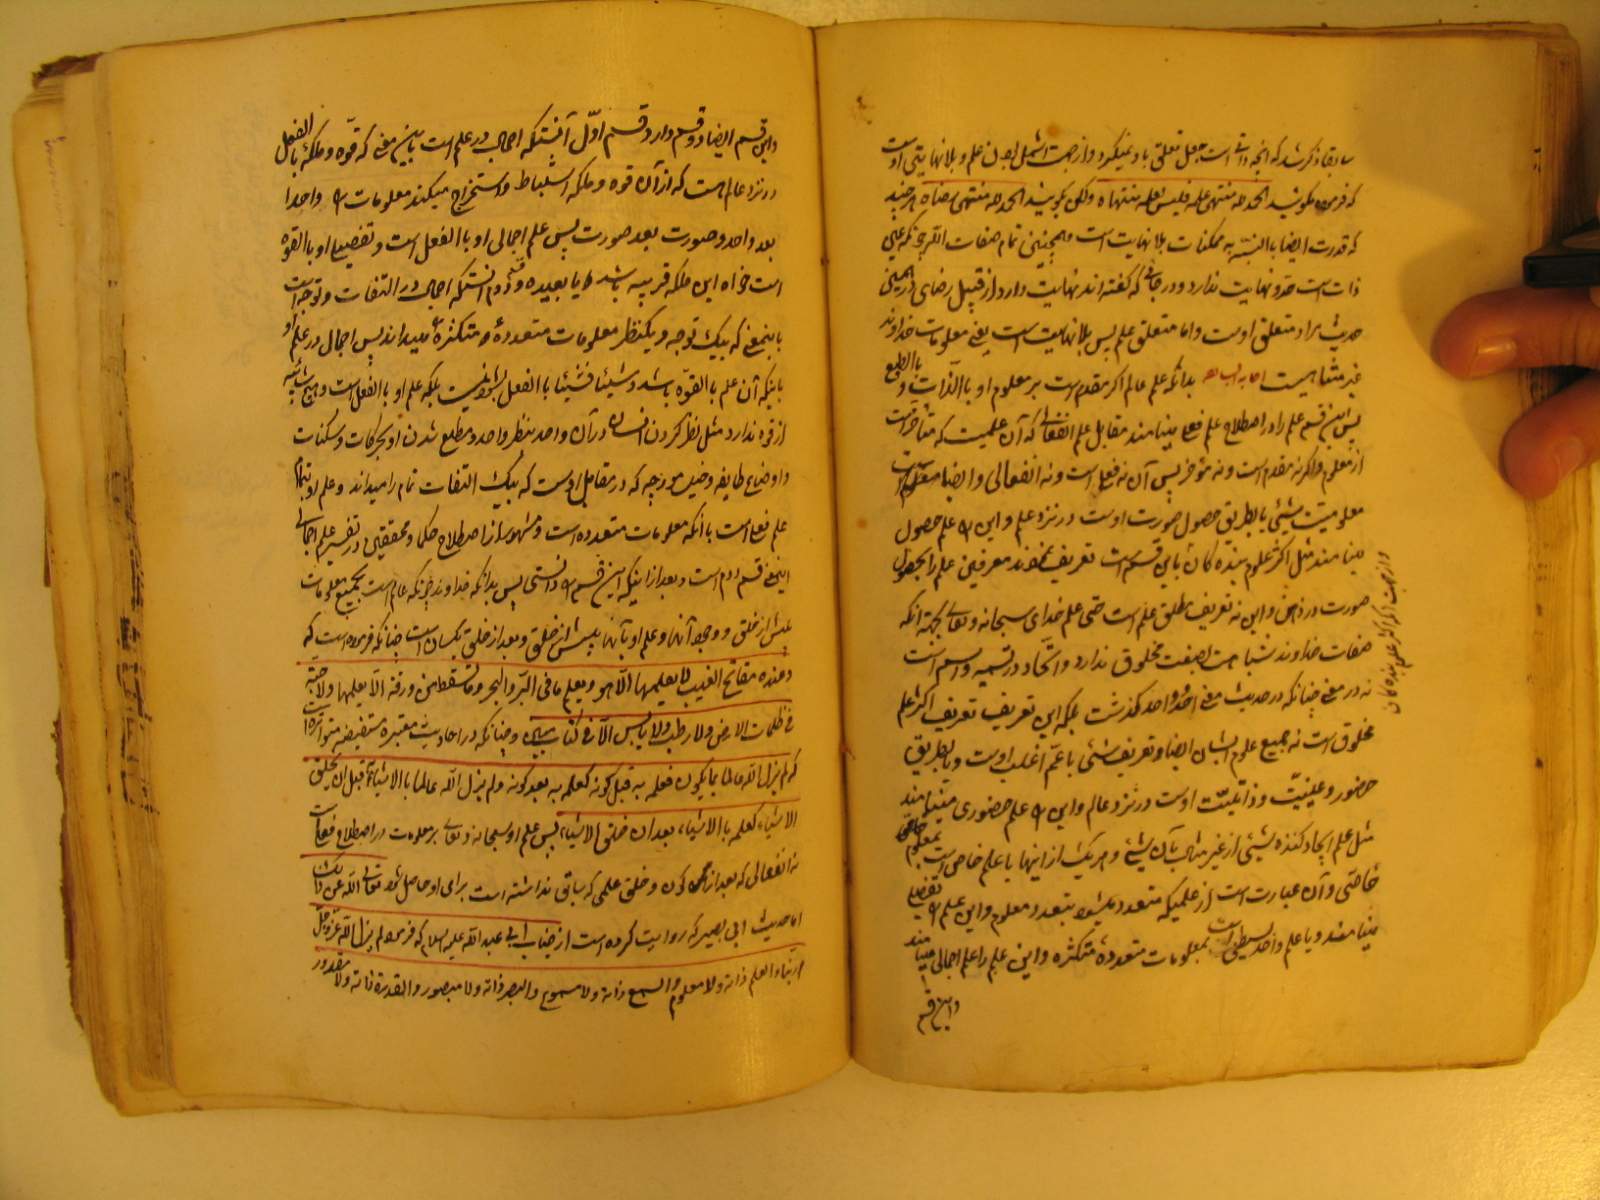 سابقا ذکر شد که آنچه ذاتی است جعل تعلق باو نمیگیرد و از جهت اشمل بودن علم و بلا نهایتی اوست
که فرموده مگوئید الحمد لله منتهی علمه فلیس لعلمه منتهاه ولکن بگوئید الحمد لله منتهی رضاه هر چند
که قدرت ایضا باالنسبة به ممکنات بلا نهایت است و همچنین تمام صفات الله چونکه عین
ذات است حد و نهایت ندارد و در جائی که گفته اند نهایت دارد از قبیل رضای در همین
حدیث مراد متعلق اوست و اما متعلق علم پس بلا نهایت است یعنی معلومات خداوند
غیر متناهیست بدانکه علم عالم اگر مقدم است بر معلوم او باالذات و باالطبع
پس این قسم علم را در اصطلاح علم فعلی مینامند مقابل علم انفعالی که آن علمیست که متأخر است
از معلوم و اگر نه مقدم است و نه مؤخر پس آن نه فعلی است و نه انفعالی و ایضا
معلومیت شیئی یا بطریق حصول صورت اوست در نزد علم و این را علم حصول
مینامند مثل اکثر علوم بنده کان باین قسم است تعریف نموده اند معرفین علم را بحصول
صورت در ذهن و این نه تعریف مطلق علم است حتی علم خدای سبحانه و تعالی بجهة آنکه
صفات خداوند شباهت بصفت مخلوق ندارد و اتحاد در تسمیه و اسم است
نه در معنی چنانکه در حدیث معنی احد و واحد گذشت بلکه این تعریف تعریف اکثر علم
مخلوق است نه جمیع علوم ایشان ایضا و تعریف شیئی با عم اغلب اوست و یا بطریق
حضور و عینیت و ذاتیت اوست در نزد عالم و این را علم حضوری مینامند
مثل علم ایجاد کننده شیئی از غیر مثال بآن شیئی و هر یک از اینها یا علم خاص است بمعلوم خاص
خاصی و آن عبارت است از علمیکه متعدد میشود بتعدد معلوم و این علم را تفصیلی
مینامند و یا علم واحد بسیطی است بمعلومات متعدده متکثره و این علم را علم اجمالی مینامند
و این قسم
و از جهت آنکه اکثر علم بنده کان
و این قسم ایضا دو قسم دارد قسم اول آنستکه اجمال در علم است باین معنی که قوه و ملکه باالفعل
در نزد عالم هست که از آن قوه و ملکه استنباط و استخراج میکند معلومات را واحدا
بعد واحد و صورت بعد صورت پس علم اجمالی او باالفعل است و تفصیلی او باالقوه
است خواه این ملکه قریبه باشد و یا بعیده و قسم دوم آنستکه اجمال در التفات و توجه است
باینمعنی که بیک توجه و یکنظر معلومات متعدده و متکثره را میداند پس اجمال در علم او
باینکه آن علم باالقوه باشد و شیئا فشیئا باالفعل بشود نیست بلکه علم او باالفعل است و هیچ شائبه
از قوه ندارد مثل نظر کردن انسان در آن واحد بنظر واحد و مطلع شدن او بحرکات و سکنات
و اوضاع طایفه و خیل مورچه که در مقابل اوست که بیک التفات تمام را میداند و علم او بتمام
علم فعلی است با آنکه معلومات متعدده است و مشهور از اصطلاح حکما و محققین در تفسیر علم اجمالی
اینمعنی قسم دوم است و بعد از اینکه این قسم را دانستی پس بدانکه خداوند چونکه عالم است بجمیع معلومات
پیش از خلق و وجود آنها و علم او بآنها پیش از خلق و بعد از خلق یکسان است چنانکه فرموده است که
وعنده مفاتح الغیب لا یعلمها الا هو ویعلم ما فی البر والبحر وما تسقط من ورقة الا یعلمها ولا حبة
فی ظلمات الارض ولا رطب ولا یابس الا فی کتاب مبین و چنانکه در احادیث معتبره مستفیضه متواتره است
که لم یزل الله عالما بما یکون فعلمه به قبل کونه کعلمه به بعد کونه ولم یزل الله عالما باالاشیاء قبل ان یخلق
الاشیاء کعلمه باالاشیاء بعد ان خلق الاشیاء پس علم او سبحانه و تعالی بر معلومات در اصطلاح فعلی است
نه انفعالی که بعد از کون و خلق علمی که سابق نداشته است برای او حاصل شود تعالی الله عن ذلک
اما حدیث ابی بصیر که روایت کرده است از جناب ابی عبد الله علیه السلام که فرموده لم یزل الله عز وجل
ربنا والعلم ذاته ولا معلوم والسمع ذاته ولا مسموع والبصر ذاته ولا مبصور والقدرة ذاته ولا مقدور